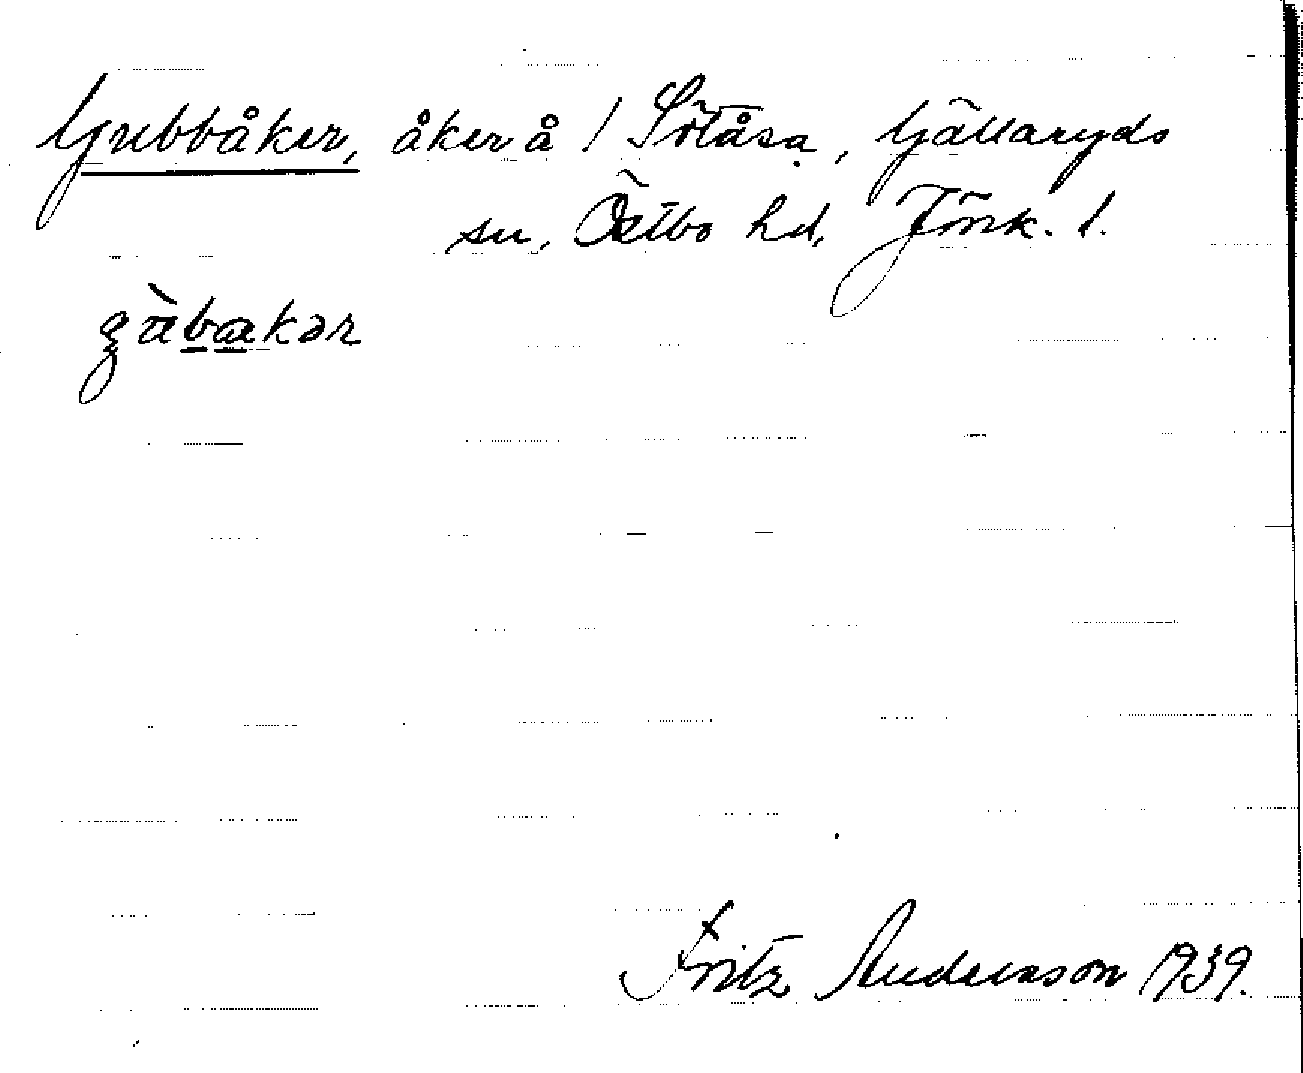 Gubbåker, åker å / Sötåsa, Gällaryds
sn, Östbo hd, Jönk. l.
Fritz Andersson 1939.